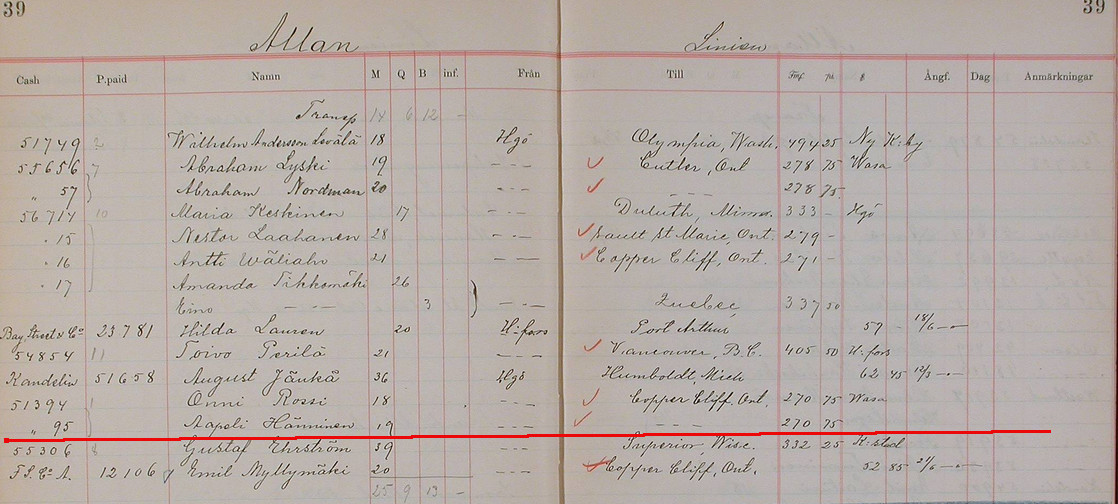 39 39
Allan Linien
Cash P.paid Namn M Q B inf. Från Till Fmk pi. $ Ångf. Dag Anmärkningar
Transp 14 6 12 —
51749 2 Wilhelm Andersson Levälä 18 Hgö Olympia, Wash. 494 25 Ny K:by
55656 7 Abraham Lyski 19 - - - Cutler, Ont 278 75 Wasa
„ 57 Abraham Nordman 20 - - - - - - 278 75
56714 10 Maria Keskinen 17 - - - Duluth, Minn. 333 - Hgö
" 15 Nestor Laahanen 28 - - - Sault St Marie, Ont. 279 -
" 16 Antti Wäliaho 21 - - - Copper Cliff, Ont. 271 -
" 17 Amanda Tikkamäki 26
Eino - - - 3 - - - Quebec, 337 50
Bay, Street & Co 23781 Hilda Lauren 20 H:fors Port Arthur 57 18/6 - - -
54854 11 Toivo Perilä 21 - - - Vancouver, B.C. 405 50 H:fors
Kandelin 51658 August Jäukä 36 Hgö Humboldt, Mich 62 45 12/3 - - -
51394 1 Onni Rossi 18 - - - Copper Cliff, Ont. 270 75 Wasa
„ 95 Aapeli Hänninen 19 - - - - - - 270 75
55306 8 Gustaf Ehrström 39 - - - Superior, Wisc. 332 25 K:stad
F.S. Co A. 12106 7 Emil Myllymäki 20 - - - Copper Cliff, Ont. 52 85 21/6 - - -
25 9 13 —